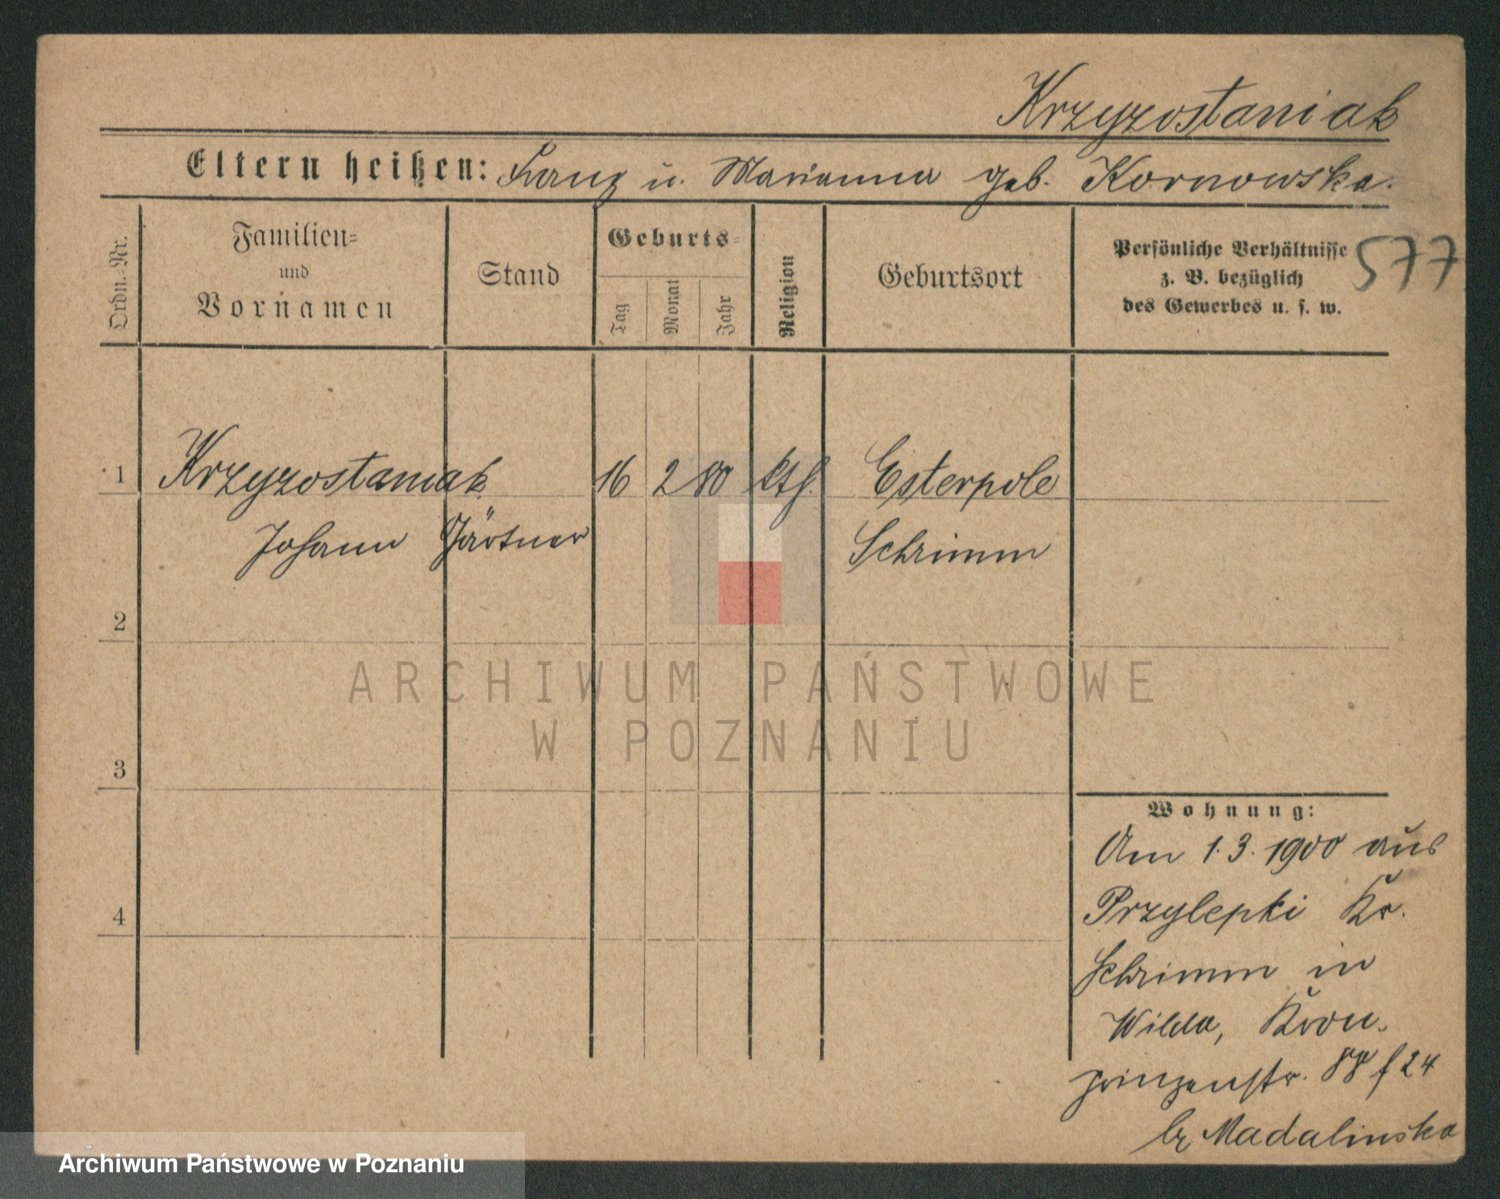 Krzyzostaniak
Eltern heißen: Franz u. Marianna geb. Kornowska.
Ordn.-Nr.
Familien-
und
Vornamen
Stand
Geburts-
Tag
Monat
Jahr
Religion
Geburtsort
Persönliche Verhältnisse
z. B. bezüglich
des Gewerbes u. s. w.
577
1 Krzyzostaniak 16 2 80 kth. Esterpole
Johann Gärtner Schrimm
2
3
4
Wohnung:
Am 1.3.1900 aus
Przylepki Kr.
Schrimm in
Wilda, Kron-
prinzenstr. 88 f 24
bz Madalinska
ARCHIWUM PAŃSTWOWE
W POZNANIU
Archiwum Państwowe w Poznaniu